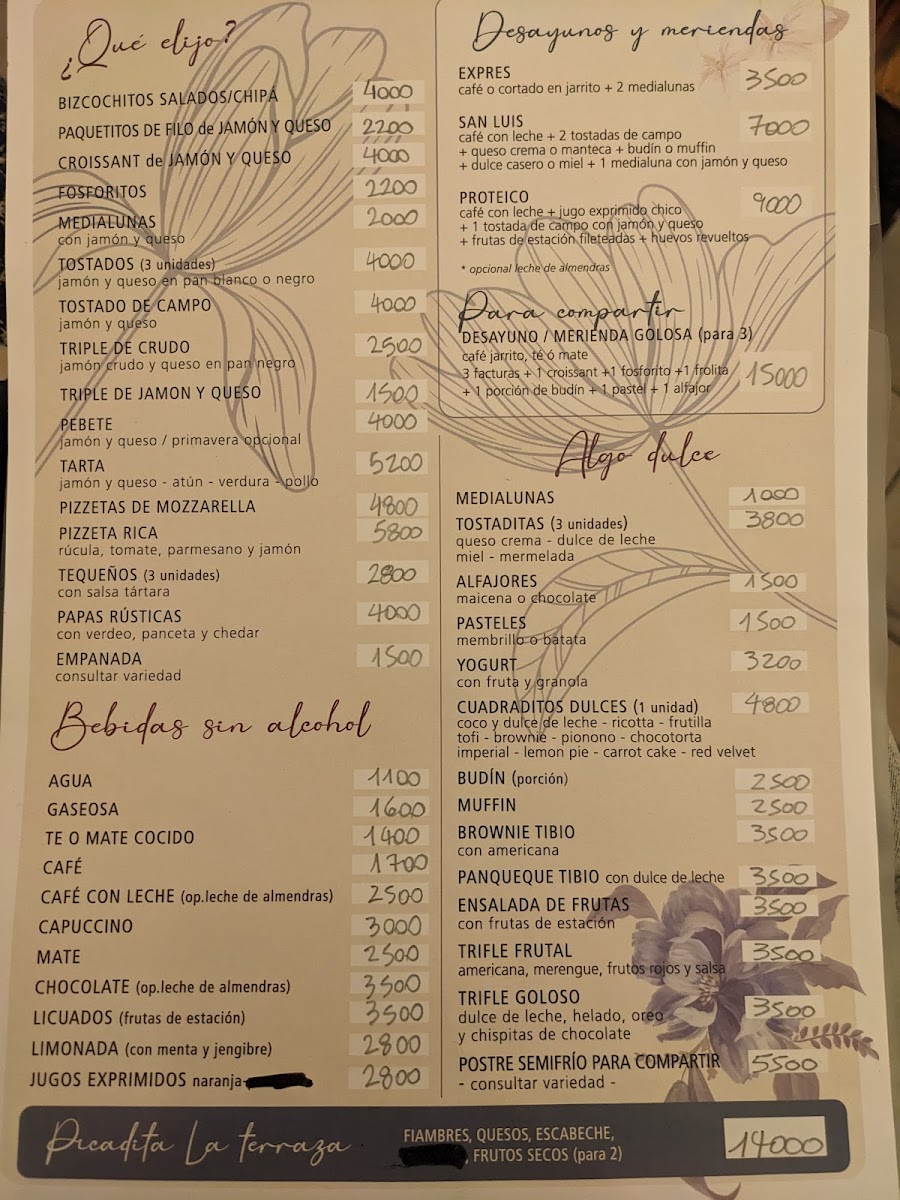 ¿Qué elijo?
BIZCOCHITOS SALADOS/CHIPÁ 4000
PAQUETITOS DE FILO de JAMÓN Y QUESO 2200
CROISSANT de JAMÓN Y QUESO 4000
FOSFORITOS 2200
MEDIALUNAS 2000
con jamón y queso
TOSTADOS (3 unidades) 4000
jamón y queso en pan blanco o negro
TOSTADO DE CAMPO 4000
jamón y queso
TRIPLE DE CRUDO 2500
jamón crudo y queso en pan negro
TRIPLE DE JAMON Y QUESO 1500
PEBETE 4000
jamón y queso / primavera opcional
TARTA 5200
jamón y queso - atún - verdura - pollo
PIZZETAS DE MOZZARELLA 4800
PIZZETA RICA 5800
rúcula, tomate, parmesano y jamón
TEQUEÑOS (3 unidades) 2800
con salsa tártara
PAPAS RÚSTICAS 4000
con verdeo, panceta y chedar
EMPANADA 1500
consultar variedad
Bebidas sin alcohol
AGUA 1100
GASEOSA 1600
TE O MATE COCIDO 1400
CAFÉ 1700
CAFÉ CON LECHE (op.leche de almendras) 2500
CAPUCCINO 3000
MATE 2500
CHOCOLATE (op.leche de almendras) 3500
LICUADOS (frutas de estación) 3500
LIMONADA (con menta y jengibre) 2800
JUGOS EXPRIMIDOS naranja- 2800
Desayunos y meriendas
EXPRES 3500
café o cortado en jarrito + 2 medialunas
SAN LUIS 7000
café con leche + 2 tostadas de campo
+ queso crema o manteca + budín o muffin
+ dulce casero o miel + 1 medialuna con jamón y queso
PROTEICO 9000
café con leche + jugo exprimido chico
+ 1 tostada de campo con jamón y queso
+ frutas de estación fileteadas + huevos revueltos
* opcional leche de almendras
Para compartir
DESAYUNO / MERIENDA GOLOSA (para 3)
café jarrito, té ó mate
3 facturas + 1 croissant +1 fosforito +1 frolita 15000
+ 1 porción de budín + 1 pastel + 1 alfajor
Algo dulce
MEDIALUNAS 1000
TOSTADITAS (3 unidades) 3800
queso crema - dulce de leche
miel - mermelada
ALFAJORES 1500
maicena o chocolate
PASTELES 1500
membrillo o batata
YOGURT 3200
con fruta y granola
CUADRADITOS DULCES (1 unidad) 4800
coco y dulce de leche - ricotta - frutilla
tofi - brownie - pionono - chocotorta
imperial - lemon pie - carrot cake - red velvet
BUDÍN (porción) 2500
MUFFIN 2500
BROWNIE TIBIO 3500
con americana
PANQUEQUE TIBIO con dulce de leche 3500
ENSALADA DE FRUTAS 3500
con frutas de estación
TRIFLE FRUTAL 3500
americana, merengue, frutos rojos y salsa
TRIFLE GOLOSO 3500
dulce de leche, helado, oreo
y chispitas de chocolate
POSTRE SEMIFRÍO PARA COMPARTIR 5500
- consultar variedad -
Picadita La terraza
FIAMBRES, QUESOS, ESCABECHE, 14000
, FRUTOS SECOS (para 2)